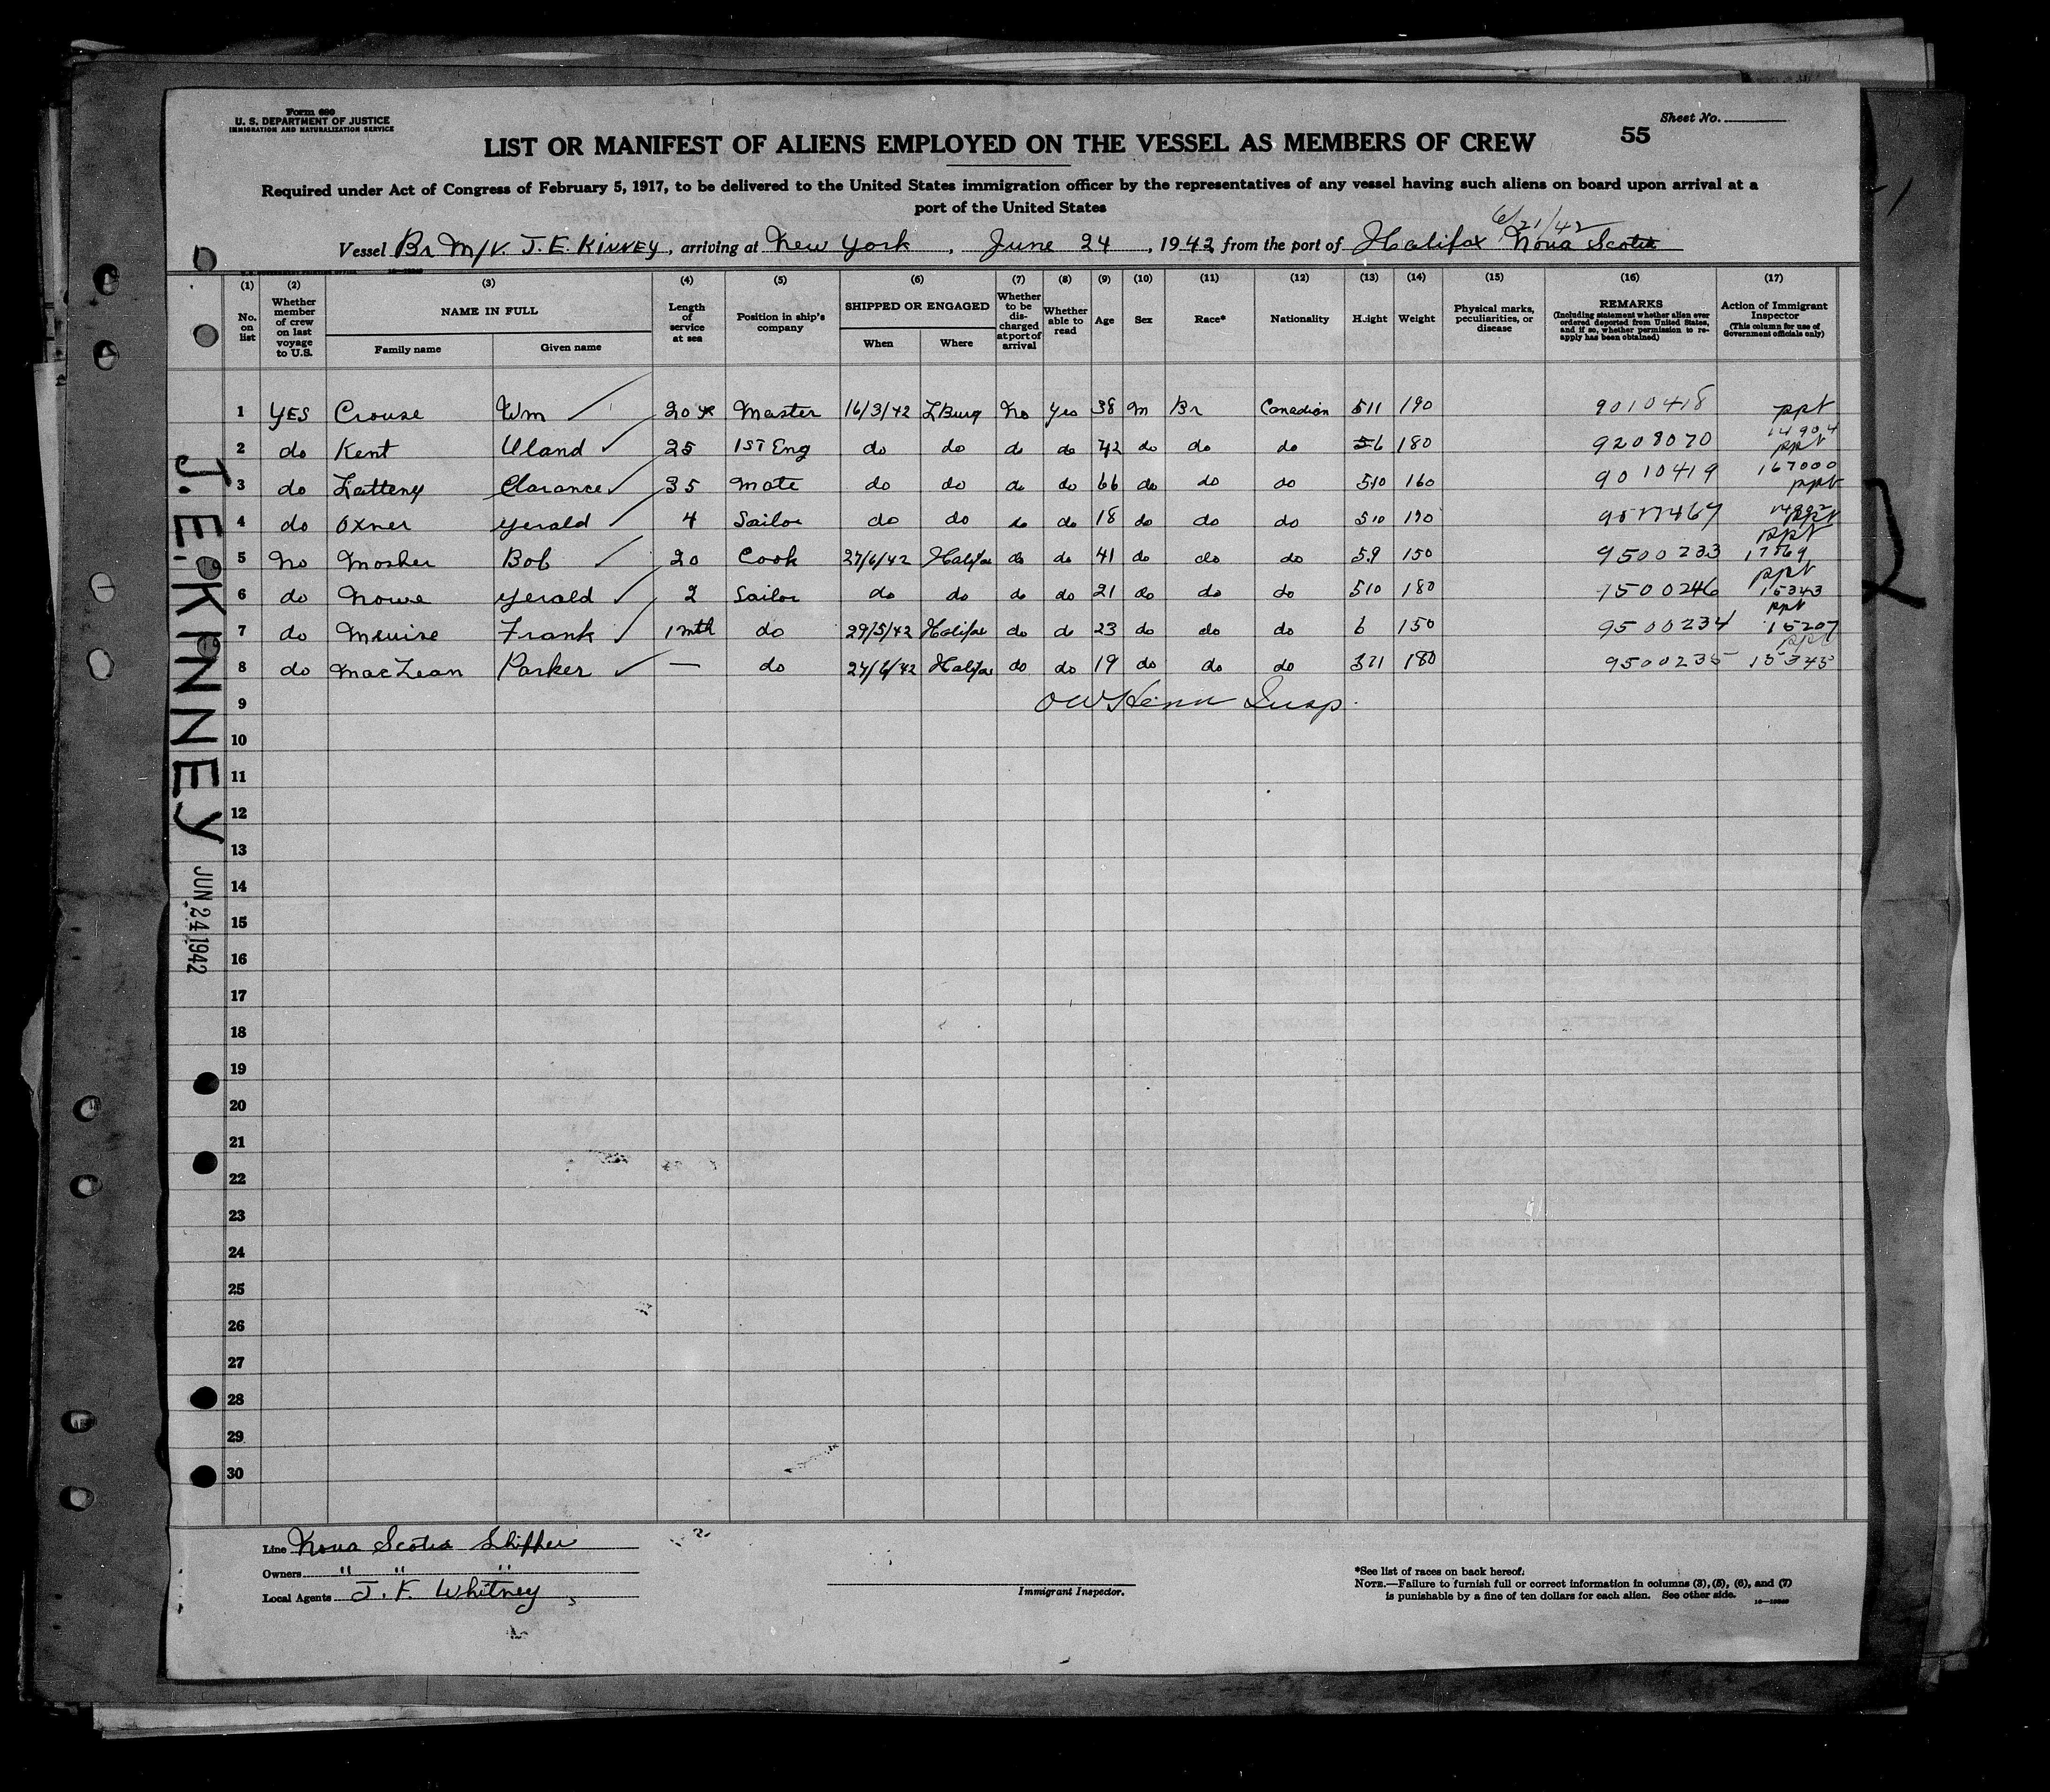 Form 680
U. S. DEPARTMENT OF JUSTICE
IMMIGRATION AND NATURALIZATION SERVICE
Sheet No.
55
LIST OR MANIFEST OF ALIENS EMPLOYED ON THE VESSEL AS MEMBERS OF CREW
Required under Act of Congress of February 5, 1917, to be delivered to the United States immigration officer by the representatives of any vessel having such aliens on board upon arrival at a
port of the United States
6/21/42
Vessel Br M/V. J. E. KINNEY, arriving at New York, June 24, 1942 from the port of Halifax Nova Scotia
(1) (2) (3) (4) (5) (6) (7) (8) (9) (10) (11) (12) (13) (14) (15) (16) (17)
No. on list
Whether member of crew on last voyage to U.S.
NAME IN FULL
Family name
Given name
Length of service at sea
Position in ship's company
SHIPPED OR ENGAGED
When
Where
Whether to be discharged at port of arrival
Whether able to read
Age
Sex
Race*
Nationality
Height
Weight
Physical marks, peculiarities, or disease
REMARKS
(Including statement whether alien ever ordered deported from United States, and if so, whether permission to reapply has been obtained)
Action of Immigrant Inspector
(This column for use of Government officials only)
1 YES Crouse Wm 20 yr Master 16/3/42 LBurg No Yes 38 M Br Canadian 511 190 9010418 ppt
2 do Kent Uland 25 1ST Eng do do do do 42 do do do 56 180 9208070 14904 ppt
3 do Clarance 35 Mate do do do do 66 do do do 510 160 9010419 167000 ppt
4 do Oxner Gerald 4 Sailor do do do do 18 do do do 510 190 ppt
5 No Mosher Bob 20 Cook Halifax do do 41 do do do 59 150 9500233 ppt
6 do Nowe Gerald 2 Sailor do do do do 21 do do do 510 180 ppt 15343
7 do Frank 1 mth do 29/5/42 Halifax do do 23 do do do 6 150 9500234 ppt 15207
8 do MacLean Parker — do Halifax do do 19 do do do 180 9500235 ppt 15345
9
Insp.
10
11
12
13
14
15
16
17
18
19
20
21
22
23
24
25
26
27
28
29
30
J. E. KINNEY
JUN 24 1942
Line Nova Scotia
Owners " " "
Local Agents J. F. Whitney
Immigrant Inspector.
*See list of races on back hereof.
NOTE.—Failure to furnish full or correct information in columns (3), (5), (6), and (7)
is punishable by a fine of ten dollars for each alien. See other side.